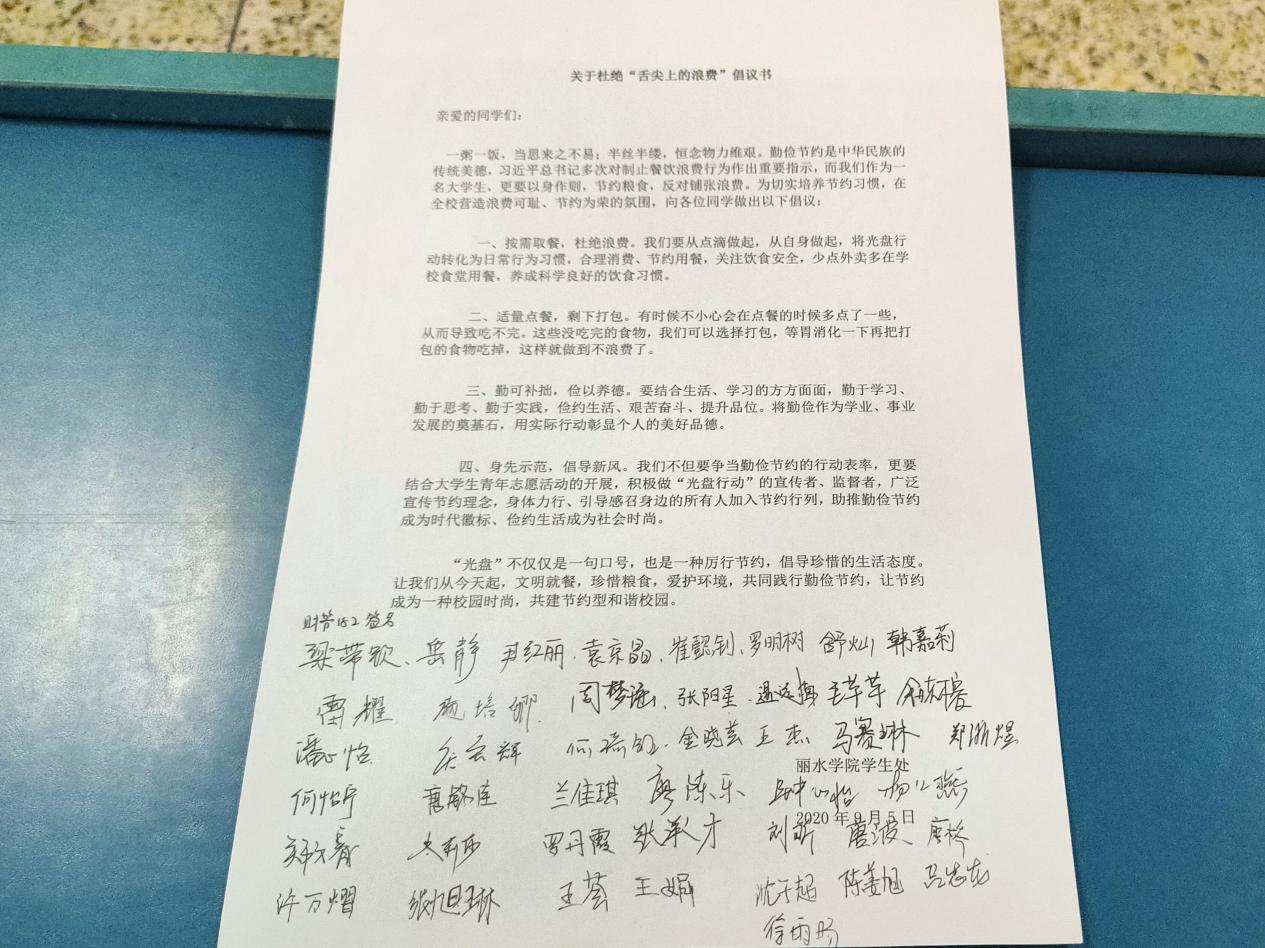 关于杜绝“舌尖上的浪费”倡议书
亲爱的同学们：
一粥一饭，当思来之不易；半丝半缕，恒念物力维艰。勤俭节约是中华民族的
传统美德，习近平总书记多次对制止餐饮浪费行为作出重要指示，而我们作为一
名大学生，更要以身作则，节约粮食，反对铺张浪费。为切实培养节约习惯，在
全校营造浪费可耻、节约为荣的氛围，向各位同学做出以下倡议：
一、按需取餐，杜绝浪费。我们要从点滴做起，从自身做起，将光盘行
动转化为日常行为习惯，合理消费、节约用餐，关注饮食安全，少点外卖多在学
校食堂用餐，养成科学良好的饮食习惯。
二、适量点餐，剩下打包。有时候不小心会在点餐的时候多点了一些，
从而导致吃不完。这些没吃完的食物，我们可以选择打包，等胃消化一下再把打
包的食物吃掉，这样就做到不浪费了。
三、勤可补拙，俭以养德。要结合生活、学习的方方面面，勤于学习、
勤于思考、勤于实践，俭约生活、艰苦奋斗、提升品位。将勤俭作为学业、事业
发展的奠基石，用实际行动彰显个人的美好品德。
四、身先示范，倡导新风。我们不但要争当勤俭节约的行动表率，更要
结合大学生青年志愿活动的开展，积极做“光盘行动”的宣传者、监督者，广泛
宣传节约理念，身体力行、引导感召身边的所有人加入节约行列，助推勤俭节约
成为时代徽标、俭约生活成为社会时尚。
“光盘”不仅仅是一句口号，也是一种厉行节约，倡导珍惜的生活态度。
让我们从今天起，文明就餐，珍惜粮食，爱护环境，共同践行勤俭节约，让节约
成为一种校园时尚，共建节约型和谐校园。
财管152 签名
梁带钦、岳静 尹红丽、袁京晶、崔懿钊、罗明树 舒灿 韩嘉莉
雷耀 施培娜 张阳星 王芊芊
潘心怡 金晓芸 王杰 马赛琳 郑浙煜
丽水学院学生处
何怡宁 唐敏佳 兰佳琪 廖陈乐
2020年9月5日
罗丹霞 张承才 刘新 唐波 唐格
许万熠 张旭琳 王荟 王娟 沈子超 陈姜旭 吕志龙
徐雨旸